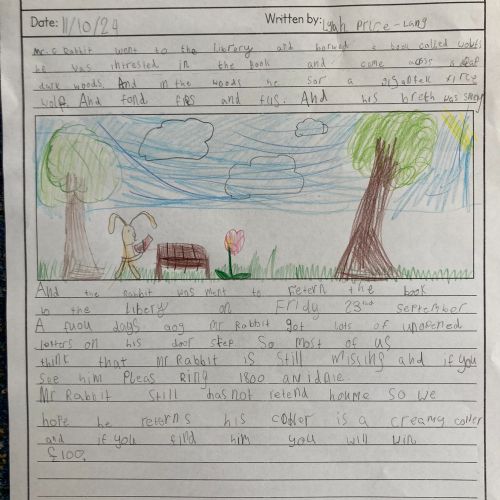 Date: 11/10/24 Written by: Lylah Price-Lang
Mr. G Rabbit went to the liberary and borwed a book called wolfs
he was intrested in the book and came acoss a
dark woods. And in the woods he sor a gigantek firce
wolf. And fond and And his breth was
And the rabbit was ment to retern the book
to the libery on Fridy 23nd september
A fuou days aog Mr Rabbit got lots of unopened
letters on his door step So most of us
think that Mr Rabbit is still missing and if you
see him Pleas Ring 1800
Mr Rabbit still has not retend houme so we
hope he reterns his coller is a creamy coller
and if you find him you will win
£100.